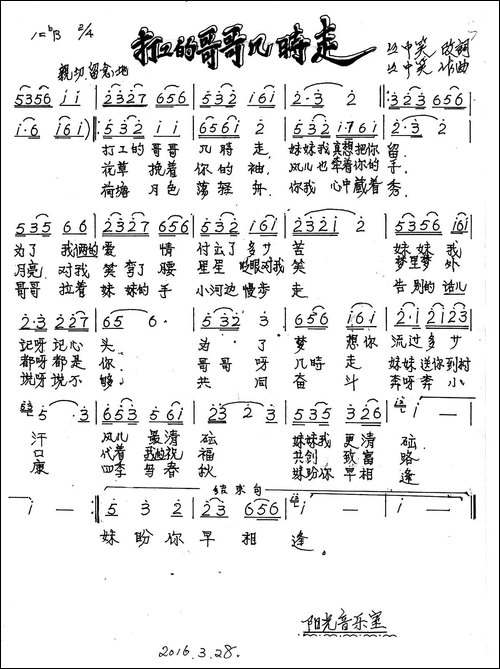 打工的哥哥几時走
1=♭B 2/4
親切 留念地
丛中笑 改詞
丛中笑 作曲
5356 i i | 2327 656 | 532 161 | 2·3 2 |: 323 656 |
i·6 161) |: 532 i i | 656i 2 | 532 i·761 | 2·3 2 |
打工的 哥哥 几時 走 妹妹我真想把你 留
花草 挽着 你的 袖 风儿也牵着你的 手
荷塘 月色 荡轻舟 你我 心中藏着 秀
535 6 6 | 2327 656 | 532 161 | 2321 2 | 5356 i6i |
为了 我俩的 爱 情 付出了多少 苦 妹妹我
月亮 对我 笑弯了 腰 星星 眨眼对我 笑 梦里梦外
哥哥 拉着 妹妹的 手 小河边 慢步 走 告别的 话儿
2·3 227 | 65 6· | 5·32 3 | 656 161 | 2·1 2123 |
记呀记心 头 为了 梦想你 流过多少
都呀都是 你 哥哥呀 几時走 妹妹送你到村
说呀说不 够 共同 奋斗 奔呀奔小
5 · 3 | 653 561 | 23 2· 3 | 535 326 | i — |
汗 风儿 最清 砿 妹妹我 更清 砿
口 代着 我的祝 福 共创 致富 路
康 四季 与春 秋 妹盼你 早相 逢
i — :| 5 3 2 | 23 656 | i — | i — |
结束句
妹盼你早相逢
阳光音乐室
2016.3.28.